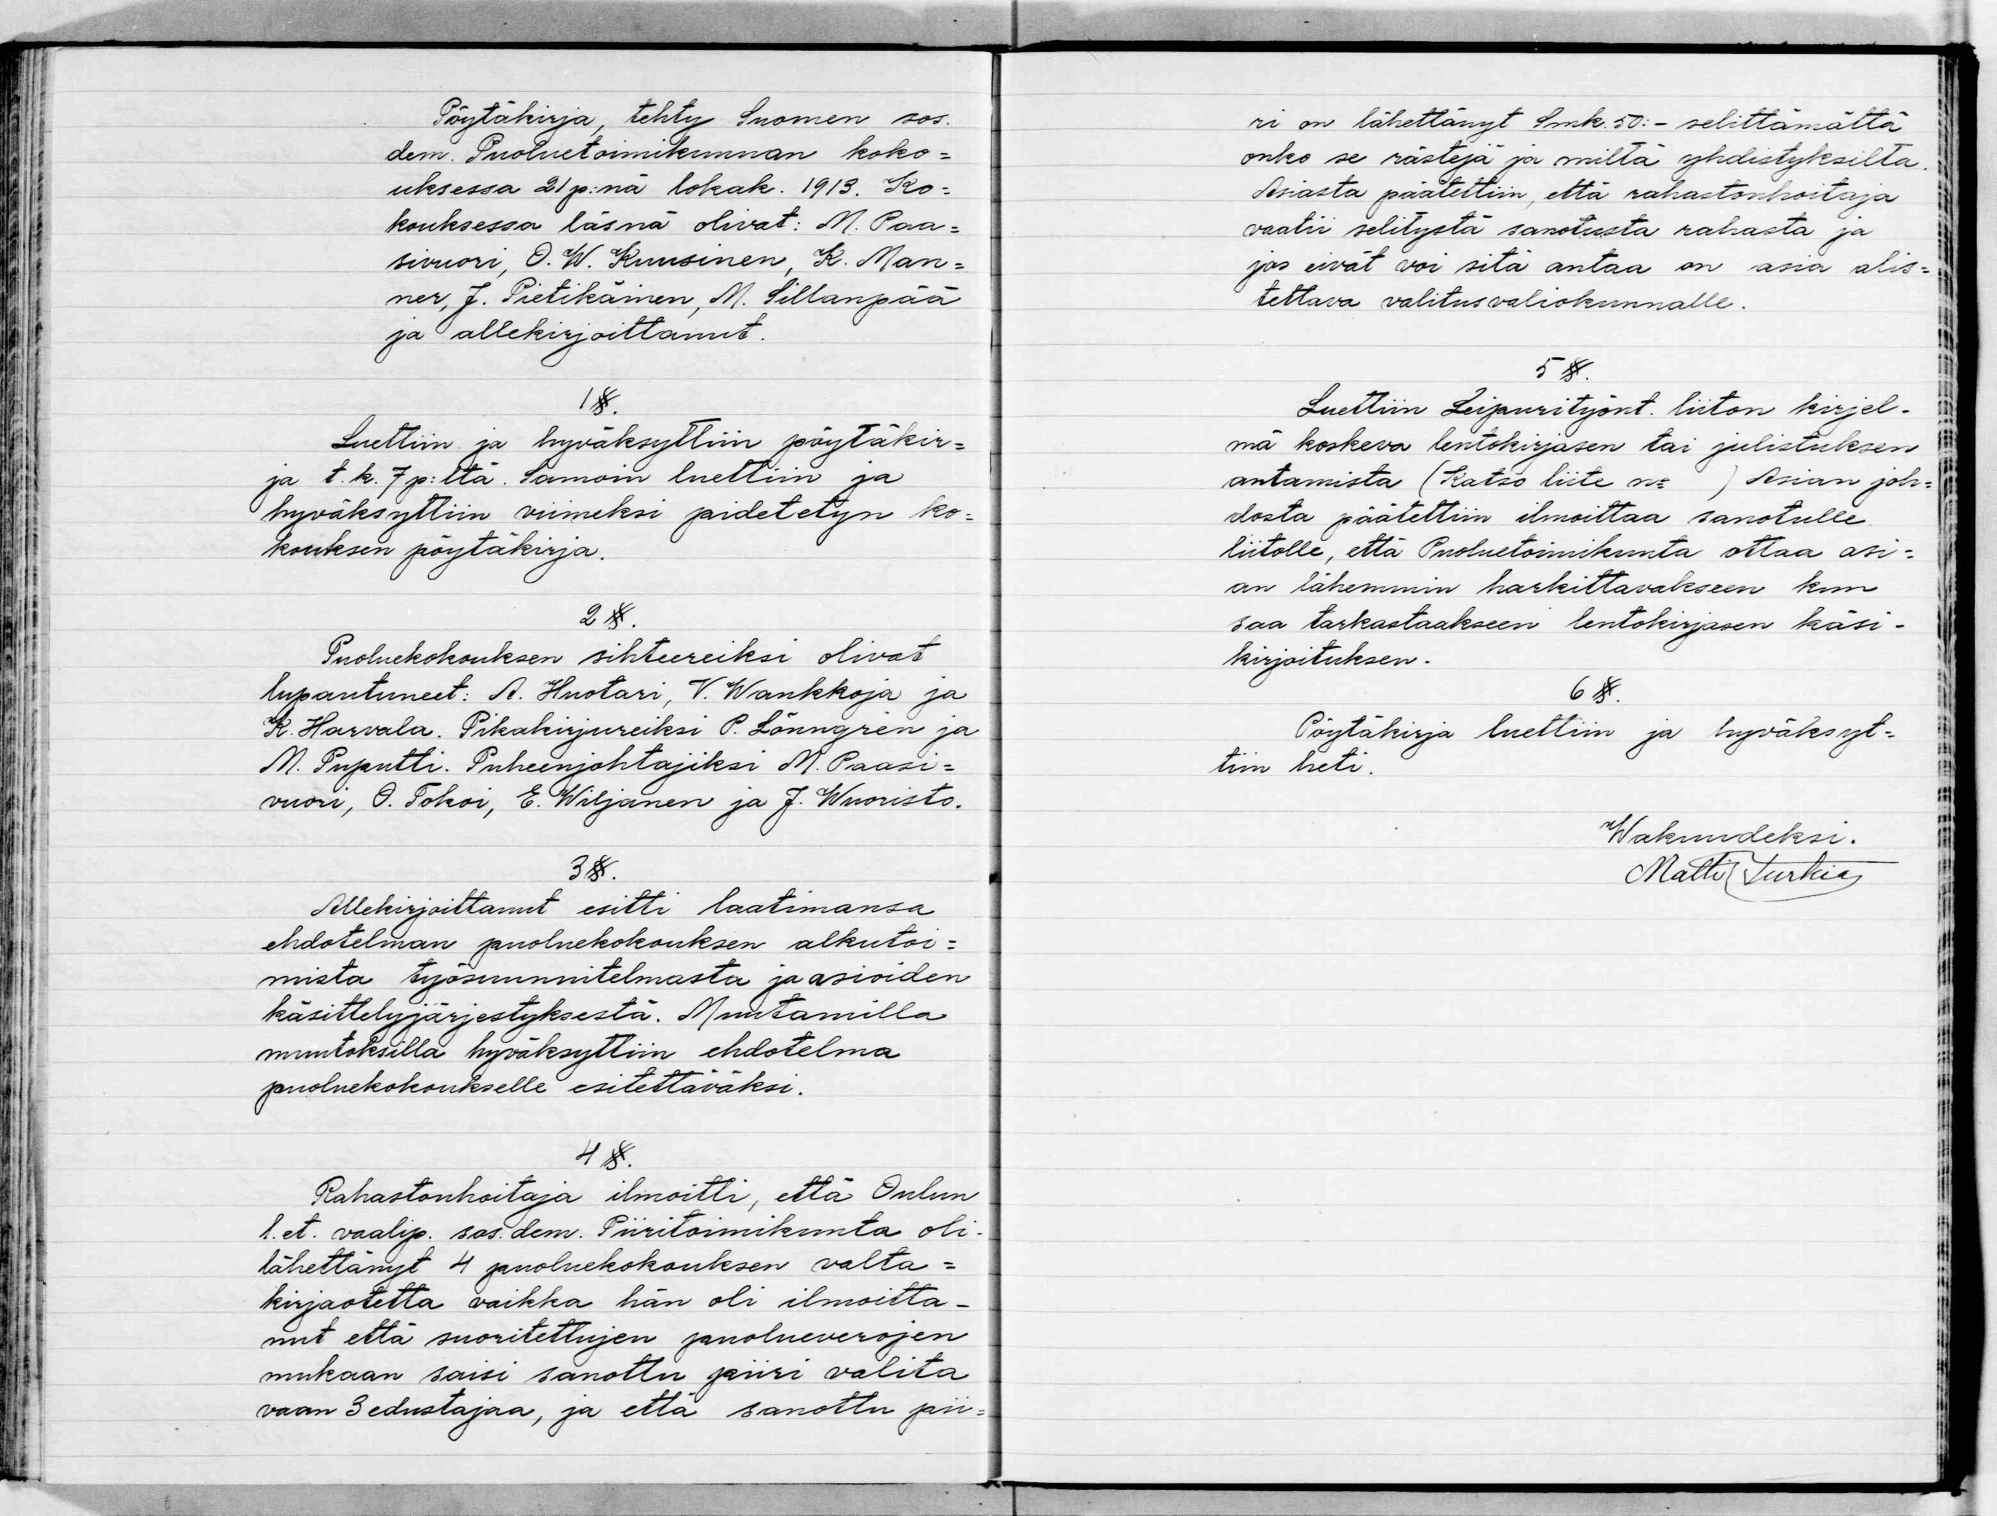 Pöytäkirja, tehty Suomen sos.
dem. Puoluetoimikunnan koko=
uksessa 21 p:nä lokak. 1913. Ko=
kouksessa läsnä olivat: M. Paa=
sivuori, O. W. Kuusinen, K. Man=
ner, J. Pietikäinen, M. Sillanpää
ja allekirjoittanut.
1 §.
Luettiin ja hyväksyttiin pöytäkir=
ja t. k. 7 p:ltä. Samoin luettiin ja
hyväksyttiin viimeksi pidetetyn ko=
kouksen pöytäkirja.
2 §.
Puoluekokouksen sihteereiksi olivat
lupautuneet: A. Huotari, V. Wankkoja ja
K. Harvala. Pikakirjureiksi P. Lönngrén ja
M. Puputti. Puheenjohtajiksi M. Paasi=
vuori, O. Tokoi, E. Wiljanen ja J. Wuoristo.
3 §.
Allekirjoittanut esitti laatimansa
ehdotelman puoluekokouksen alkutoi=
mista työsuunnitelmasta ja asioiden
käsittelyjärjestyksestä. Muutamilla
muutoksilla hyväksyttiin ehdotelma
puoluekokoukselle esitettäväksi.
4 §.
Rahastonhoitaja ilmoitti, että Oulun
l. et. vaalip. sos. dem. Piiritoimikunta oli
lähettänyt 4 puoluekokouksen valta=
kirjaotetta vaikka hän oli ilmoitta-
nut että suoritettujen puolueverojen
mukaan saisi sanottu piiri valita
vaan 3 edustajaa, ja että sanottu pii=
ri on lähettänyt Smk. 50:- selittämättä
onko se rästejä ja miltä yhdistyksiltä.
Asiasta päätettiin, että rahastonhoitaja
vaatii selitystä sanotusta rahasta ja
jos eivät voi sitä antaa on asia alis=
tettava valitusvaliokunnalle.
5 §.
Luettiin Leipurityönt. liiton kirjel-
mä koskeva lentokirjasen tai julistuksen
antamista (Katso liite n= ) Asian joh=
dosta päätettiin ilmoittaa sanotulle
liitolle, että Puoluetoimikunta ottaa asi=
an lähemmin harkittavakseen kun
saa tarkastaakseen lentokirjasen käsi-
kirjoituksen.
6 §.
Pöytäkirja luettiin ja hyväksyt=
tiin heti.
Wakuudeksi.
Matti Turkia